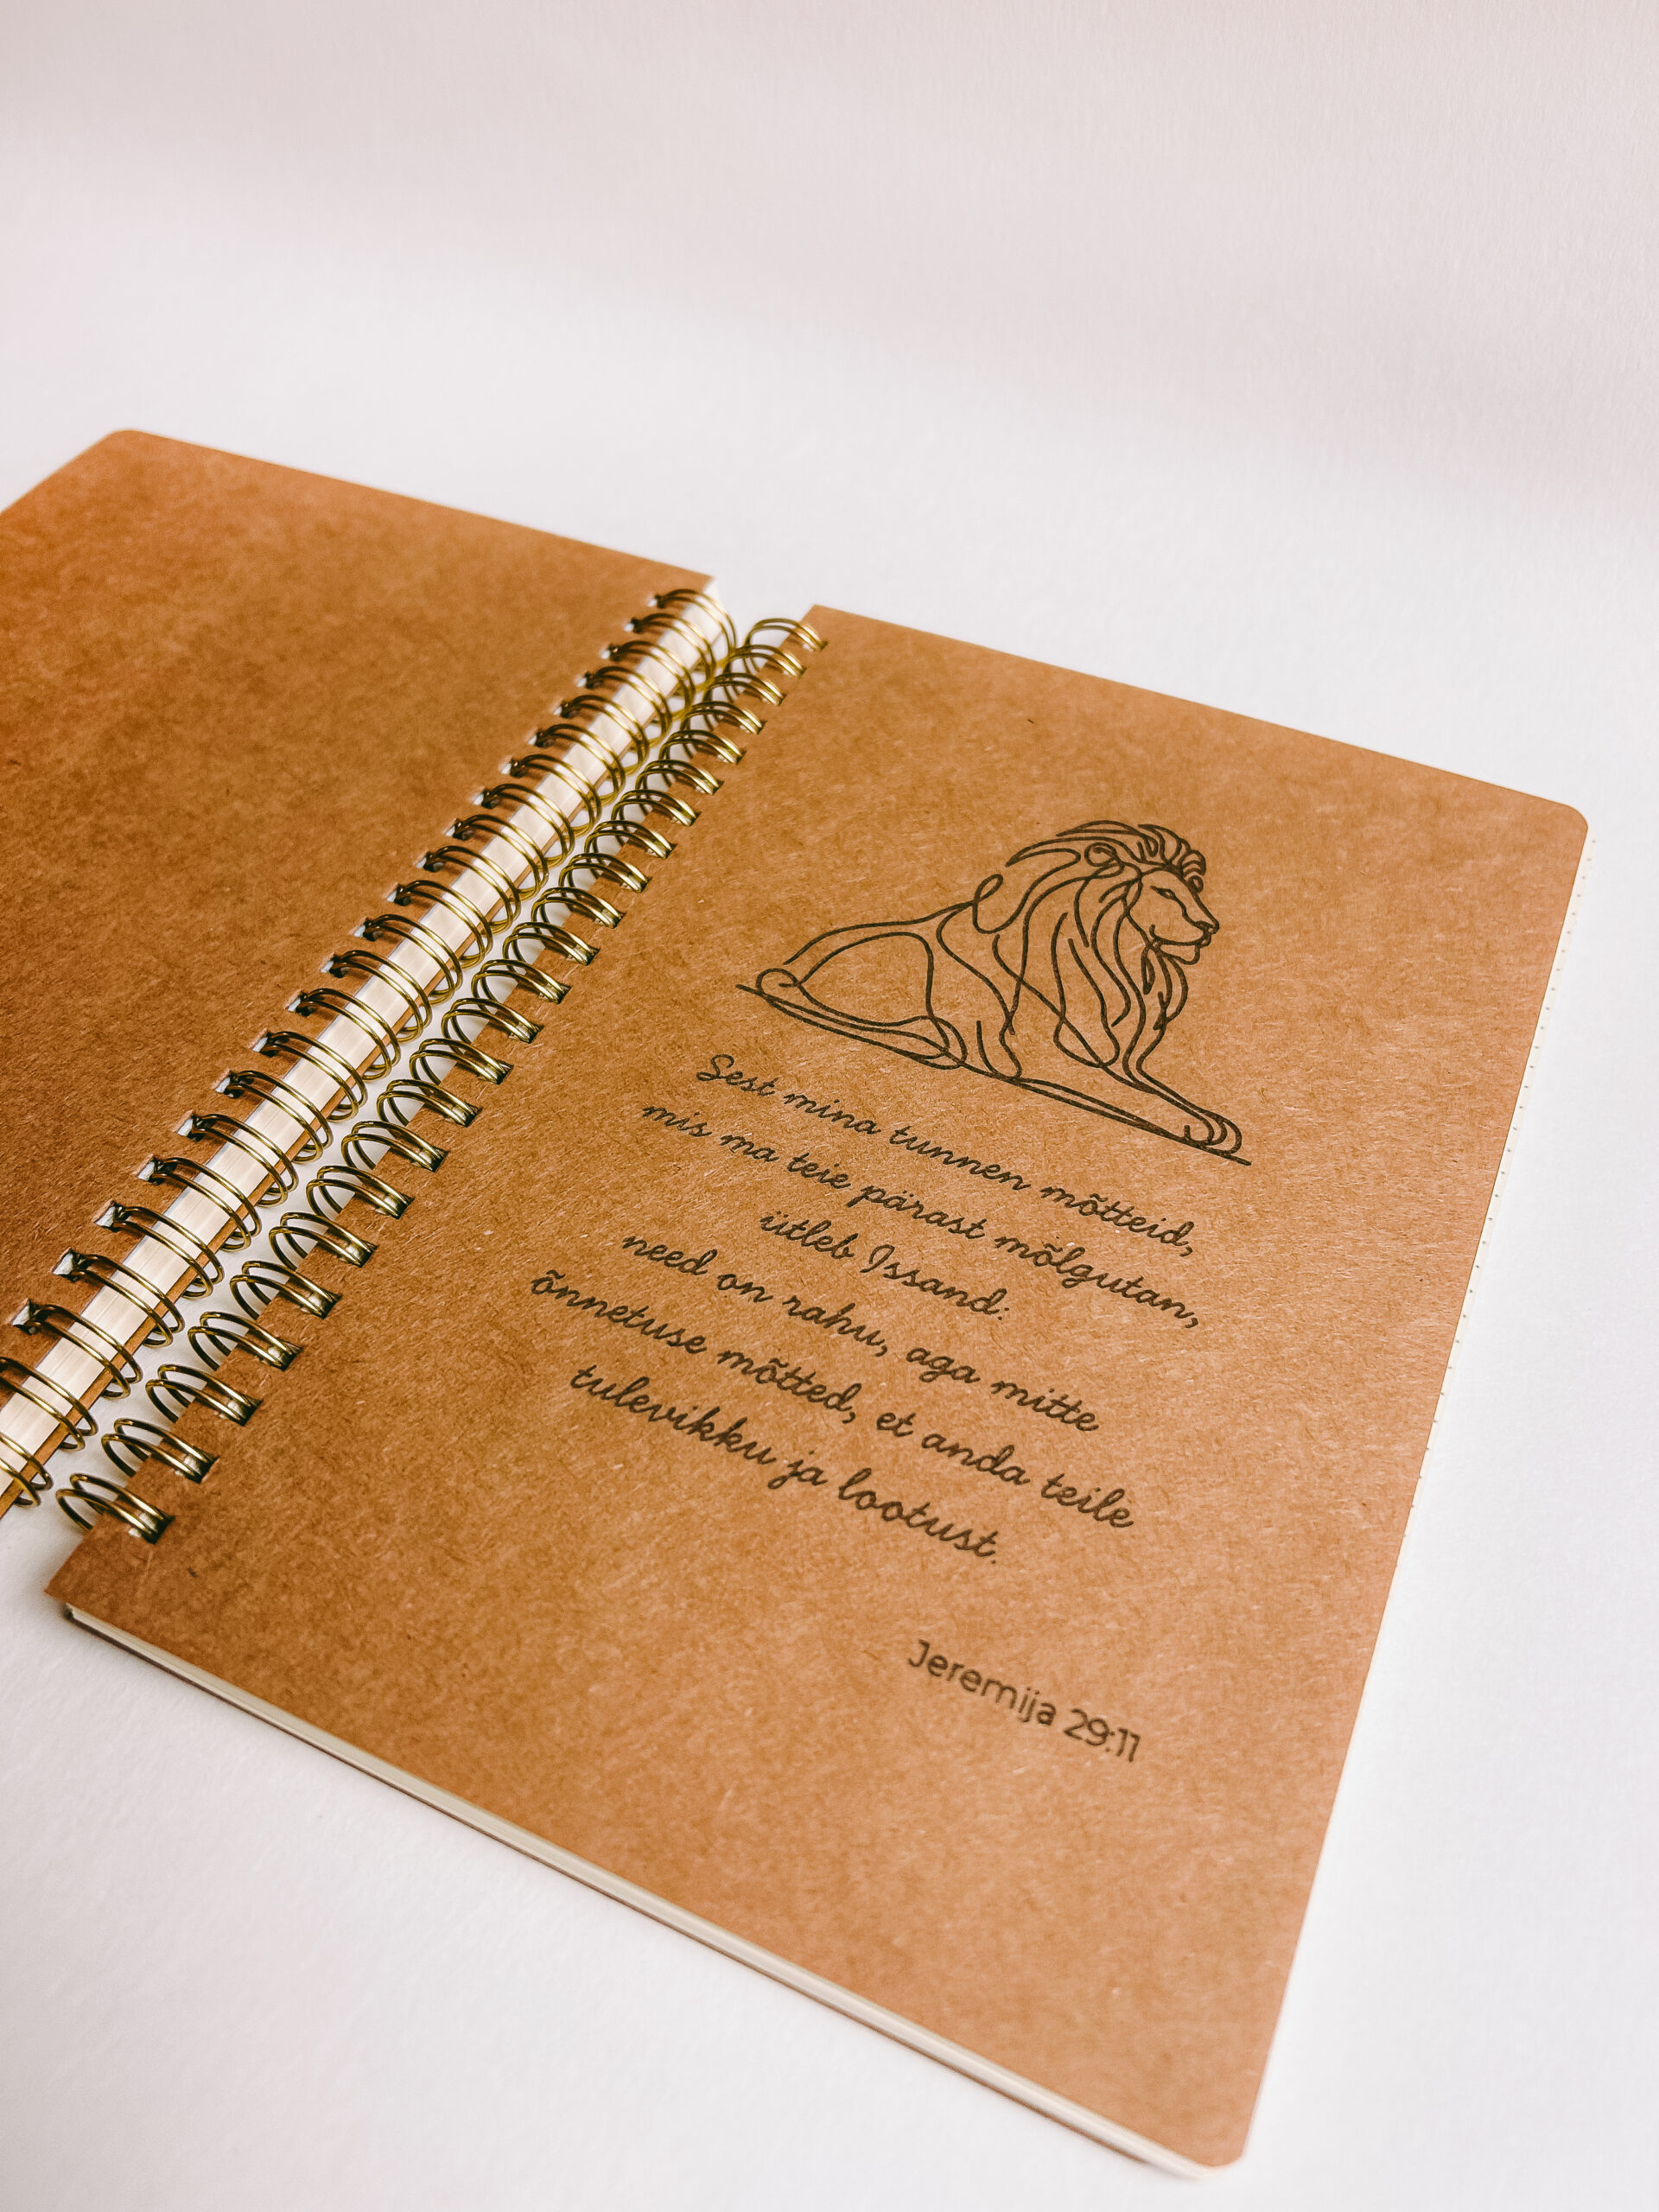 Sest mina tunnen mõtteid,
mis ma teie pärast mõlgutan,
ütleb Issand:
need on rahu, aga mitte
õnnetuse mõtted, et anda teile
tulevikku ja lootust.
Jeremija 29:11